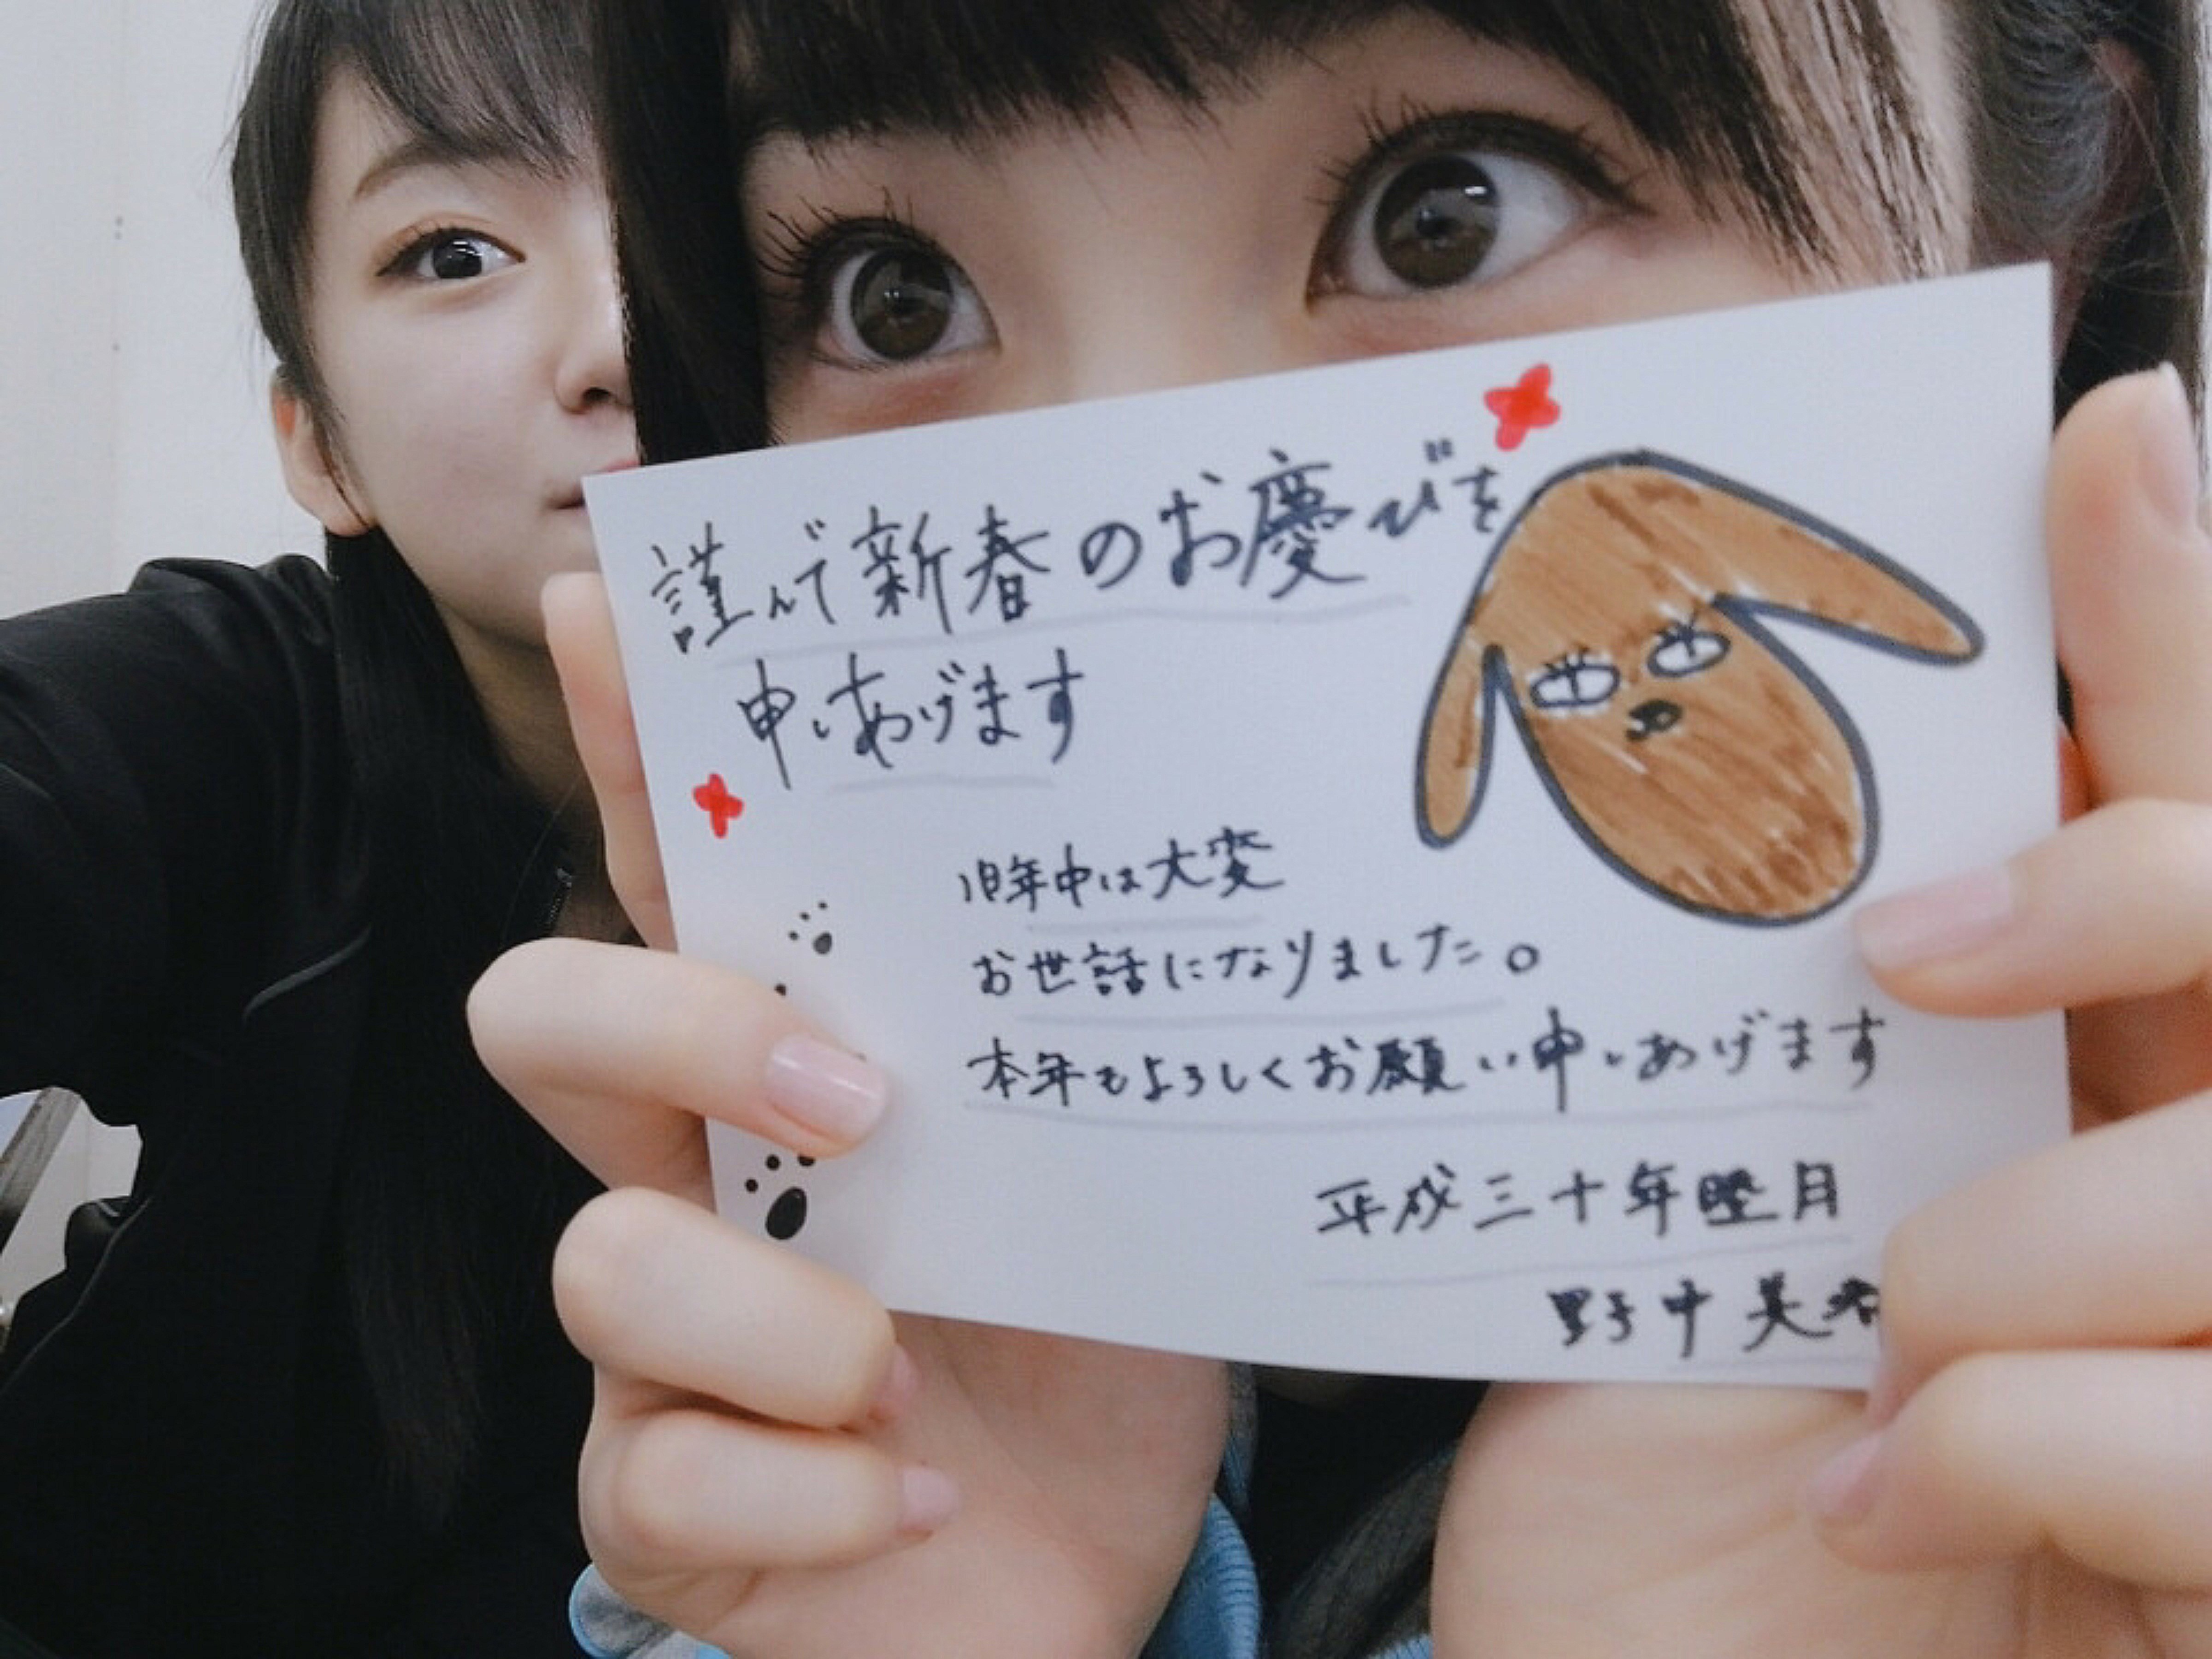 謹んで新春のお慶びを
申しあげます
旧年中は大変
お世話になりました。
本年もよろしくお願い申しあげます
平成三十年睦月
野中美